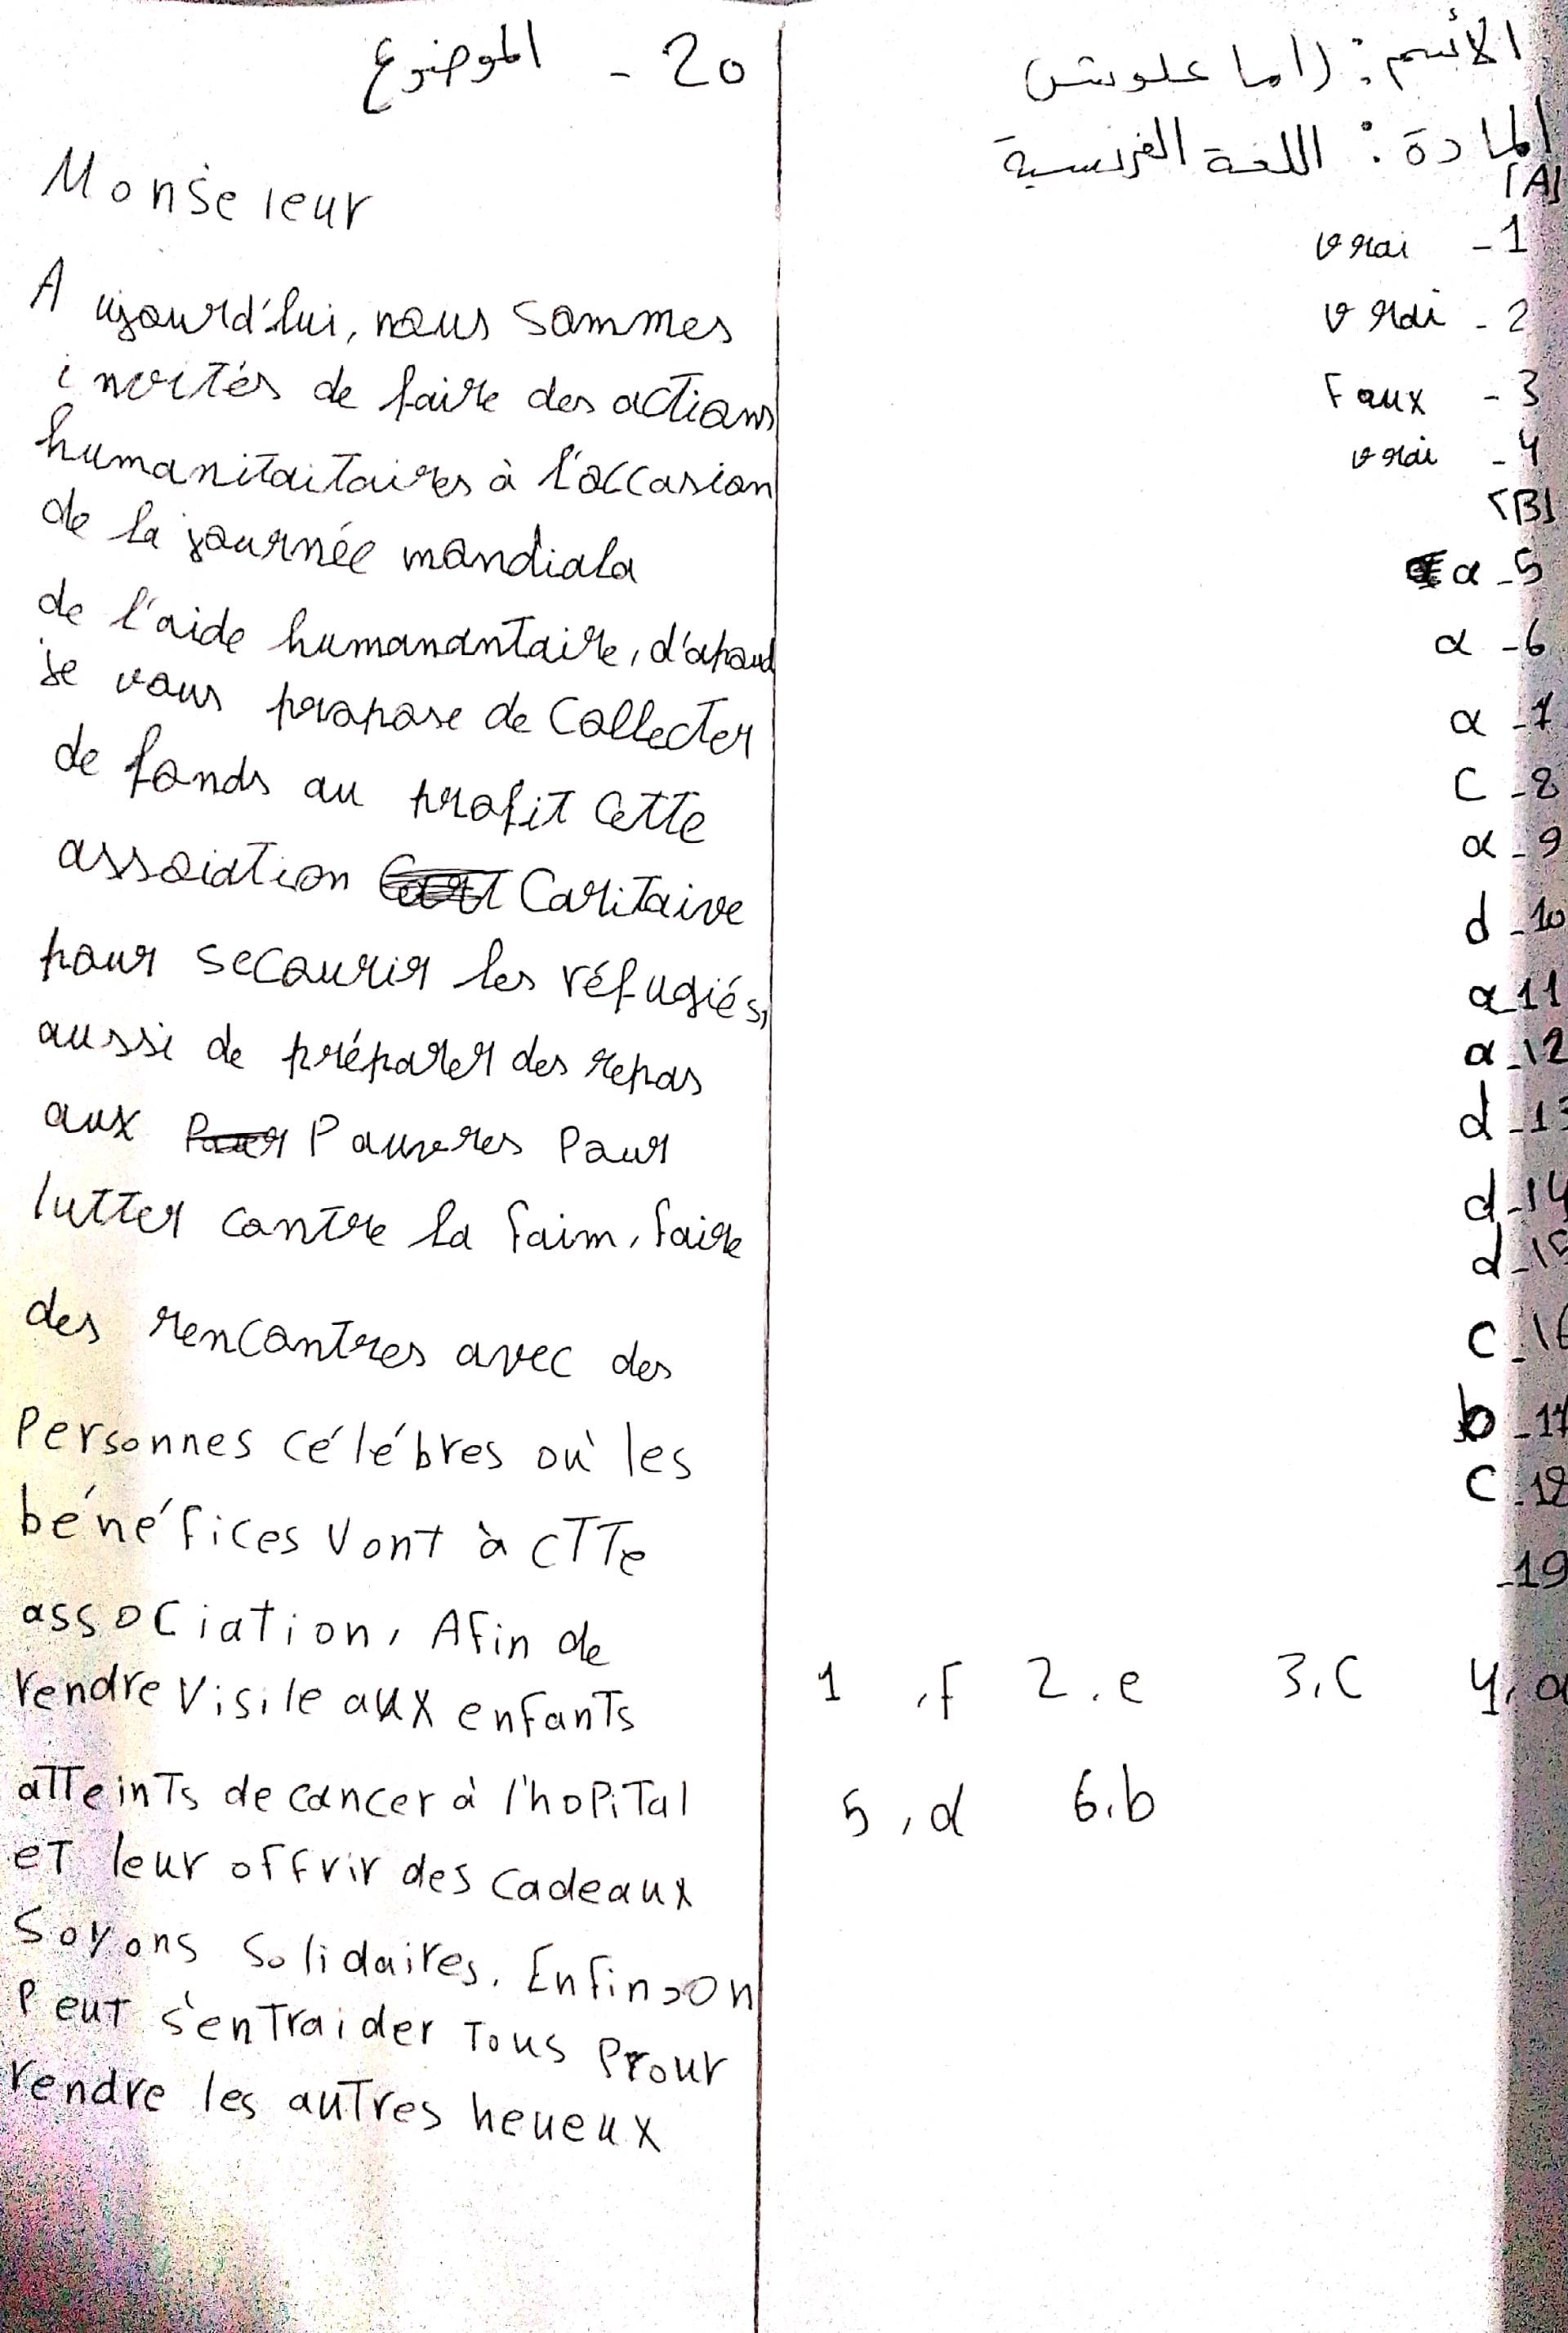 الأسم: راما علوش
المادة: اللغة الفرنسية
[A]
vrai - 1
vrai - 2
Faux - 3
vrai - 4
[B]
a - 5
a - 6
a - 7
c - 8
a - 9
d - 10
a - 11
a - 12
d - 13
d - 14
d - 15
c - 16
b - 17
c - 18
- 19
1 , f 2 . e 3 . c 4 , a
5 , d 6 . b
20 - الموضوع
Monseieur
Aujourd'hui, nous sommes
invités de faire des actions
humanitaitaires à l'occasion
de la journée mondiala
de l'aide humanantaire, d'abord
je vous propose de collecter
de fonds au profit cette
assoiation Caritaive
pour secourir les réfugiés,
aussi de préparer des repas
aux Pauvres Pour
lutter contre la faim, faire
des rencontres avec des
Personnes célébres où les
bénéfices vont à cTTe
association, Afin de
rendre visile aux enfants
atteints de cancer à l'hopital
et leur offrir des cadeaux
Soyons Solidaires. Enfin, on
Peut s'entraider Tous Prour
rendre les autres heueux